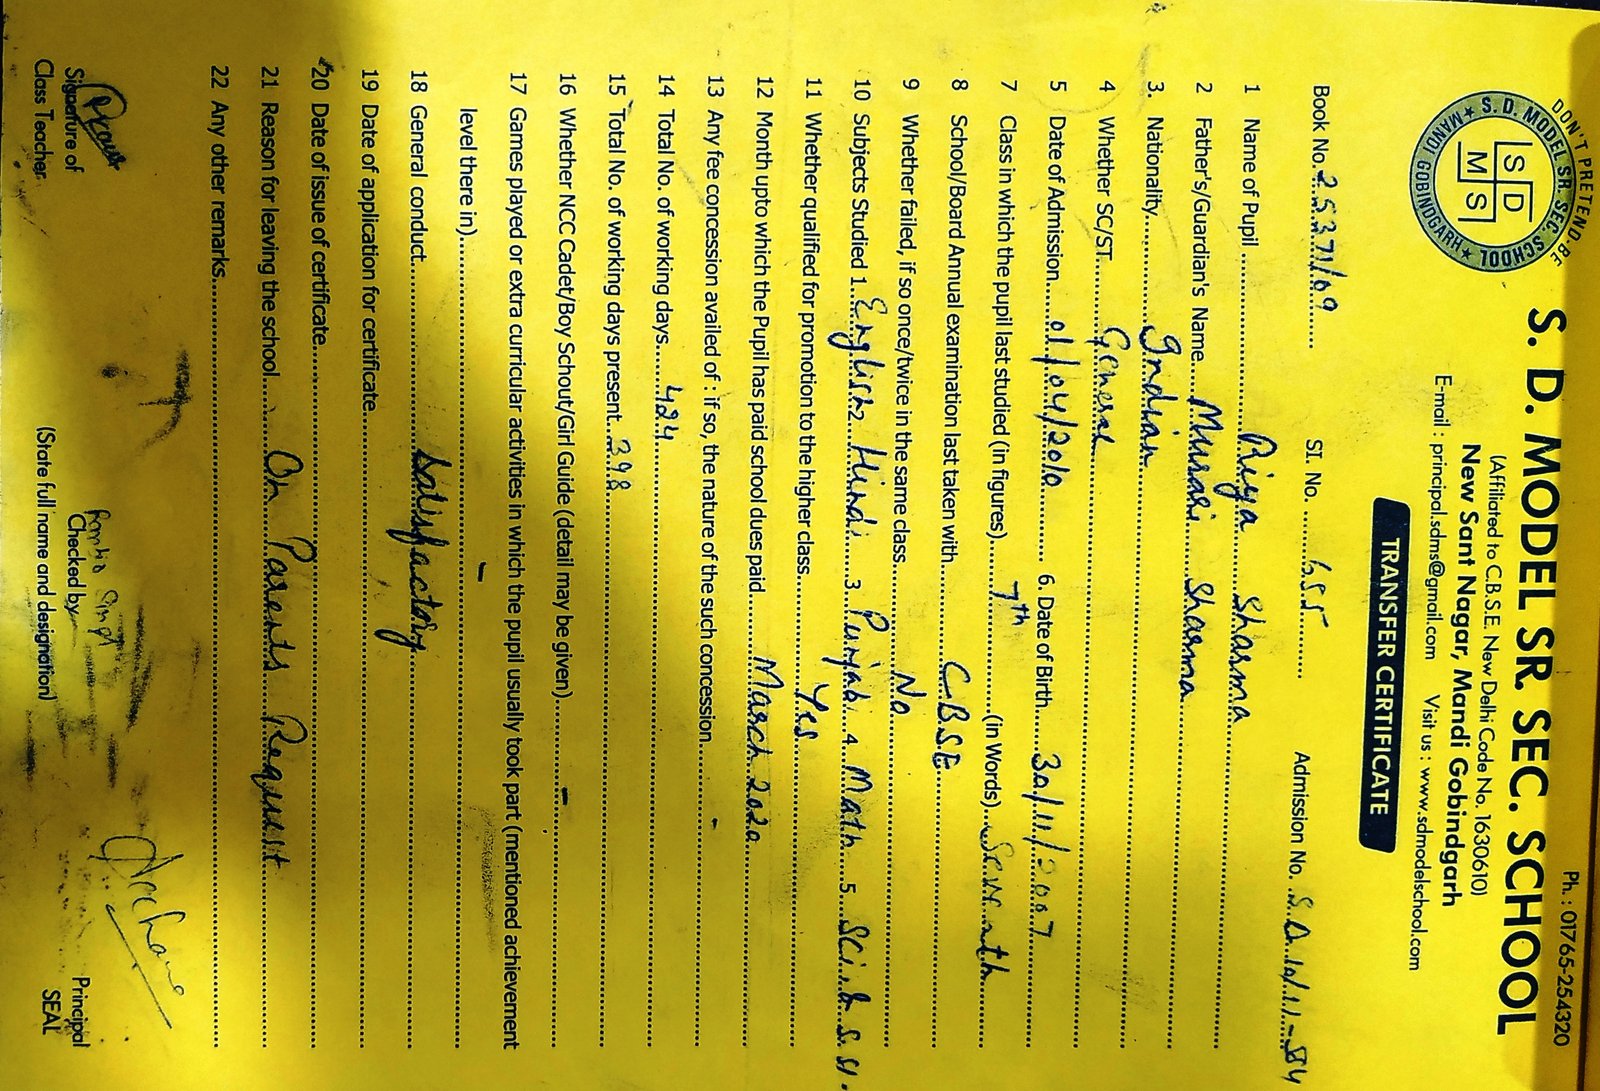 DON'T PRETEND-BE
Ph. : 01765-254320
S. D. MODEL SR. SEC. SCHOOL
★ MANDI GOBINDGARH ★
S D
M S
S. D. MODEL SR. SEC. SCHOOL
(Affiliated to C.B.S.E. New Delhi Code No. 1630610)
New Sant Nagar, Mandi Gobindgarh
E-mail : principal.sdms@gmail.com Visit us : www.sdmodelschool.com
TRANSFER CERTIFICATE
Book No. 25371/09 SI. No. 655 Admission No. S.D.10/11-84
1 Name of Pupil Riya Sharma
2 Father's/Guardian's Name Murari Sharma
3. Nationality Indian
4 Whether SC/ST General
5 Date of Admission 01/04/2010 6. Date of Birth 30/11/2007
7 Class in which the pupil last studied (in figures) 7th (in Words) Seventh
8 School/Board Annual examination last taken with CBSE
9 Whether failed, if so once/twice in the same class No
10 Subjects Studied 1. English 2 Hindi 3. Punjabi 4. Math 5. Sci. & S.St.
11 Whether qualified for promotion to the higher class Yes
12 Month upto which the Pupil has paid school dues paid March 2020
13 Any fee concession availed of : if so, the nature of the such concession
14 Total No. of working days 424
15 Total No. of working days present 398
16 Whether NCC Cadet/Boy Schout/Girl Guide (detail may be given) -
17 Games played or extra curricular activities in which the pupil usually took part (mentioned achievement
level there in) -
18 General conduct Satisfactory
19 Date of application for certificate
20 Date of issue of certificate
21 Reason for leaving the school On Parents Request
22 Any other remarks
Archana
Signature of Checked by Principal
Class Teacher (State full name and designation) SEAL